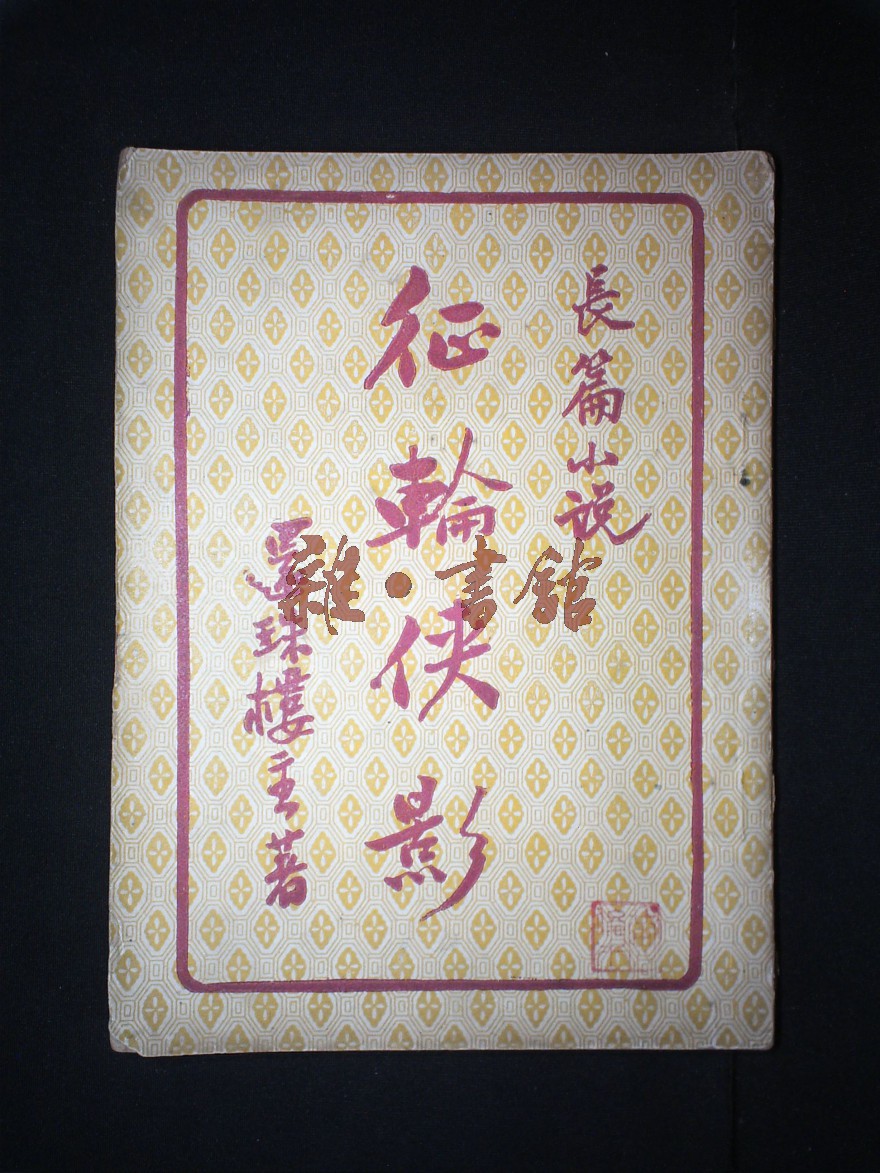 長篇小説
征輪俠影
還珠樓主著
雜·書館